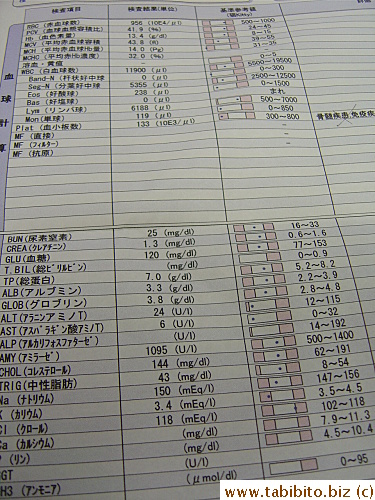 検査項目 検査結果(単位) 基準参考値
RBC (赤血球数) 956 (10E4/μl) 500～1000
PCV 41.9 (%) 24～45
Hb (血色素量) 13.4 (g/dl) 8～15
MCV (平均赤血球容積 43.8 (fl) 39～55
MCH (平均赤血球Hb量 14.0 (Pg)
MCHC (平均赤Hb濃度 32.0 (%) 31～35
溶血・黄疸
WBC (白血球数) 11900 (μl) 5500～19500
Band-N (杆状好中球 0 (μl) 0～300
Seg-N (分葉好中球 5355 (μl) 2500～12500
Eos (好酸球) 238 (μl) 0～1500
Bas (好塩球) 0 (μl) まれ
Lym (リンパ球) 6188 (μl) 500～7000
Mon(単球) 119 (μl) 0～850
Plat (血小板数) 133 (10E3/μl) 300～800 骨髄疾患,免疫疾
MF (直接)
MF (フィルター)
MF (抗原)
血球計算
BUN(尿素窒素) 25 (mg/dl) 16～33
CREA(クレアチニン) 1.3 (mg/dl) 0.6～1.6
GLU(血糖) 120 (mg/dl) 77～153
T.BIL(総ビリルビン) (mg/dl) 0～0.9
TP(総蛋白) 7.0 (g/dl) 5.2～8.2
ALB(アルブミン) 3.3 (g/dl) 2.2～3.9
GLOB(グロブリン) 3.8 (g/dl) 2.8～4.8
ALT(アラニンアミノT) 24 (U/l) 12～115
AST(アスパラギン酸アミノT) 6 (U/l) 0～32
ALP(アルカリフォスファターゼ) (U/l) 14～192
AMY(アミラーゼ) 1095 (U/l) 500～1400
CHOL(コレステロール) 144 (mg/dl) 62～191
TRIG(中性脂肪) 43 (mg/dl) 8～54
Na (ナトリウム) 150 (mEq/l) 147～156
K (カリウム) 3.4 (mEq/l) 3.5～4.5
Cl (クロール) 118 (mEq/l) 102～118
Ca (カルシウム) (mg/dl) 7.9～11.3
P (リン) (mg/dl) 4.5～10.4
GGT (U/l)
NH3 (アンモニア) (μmol/dl) 0～95
www.tabibito.biz (c)